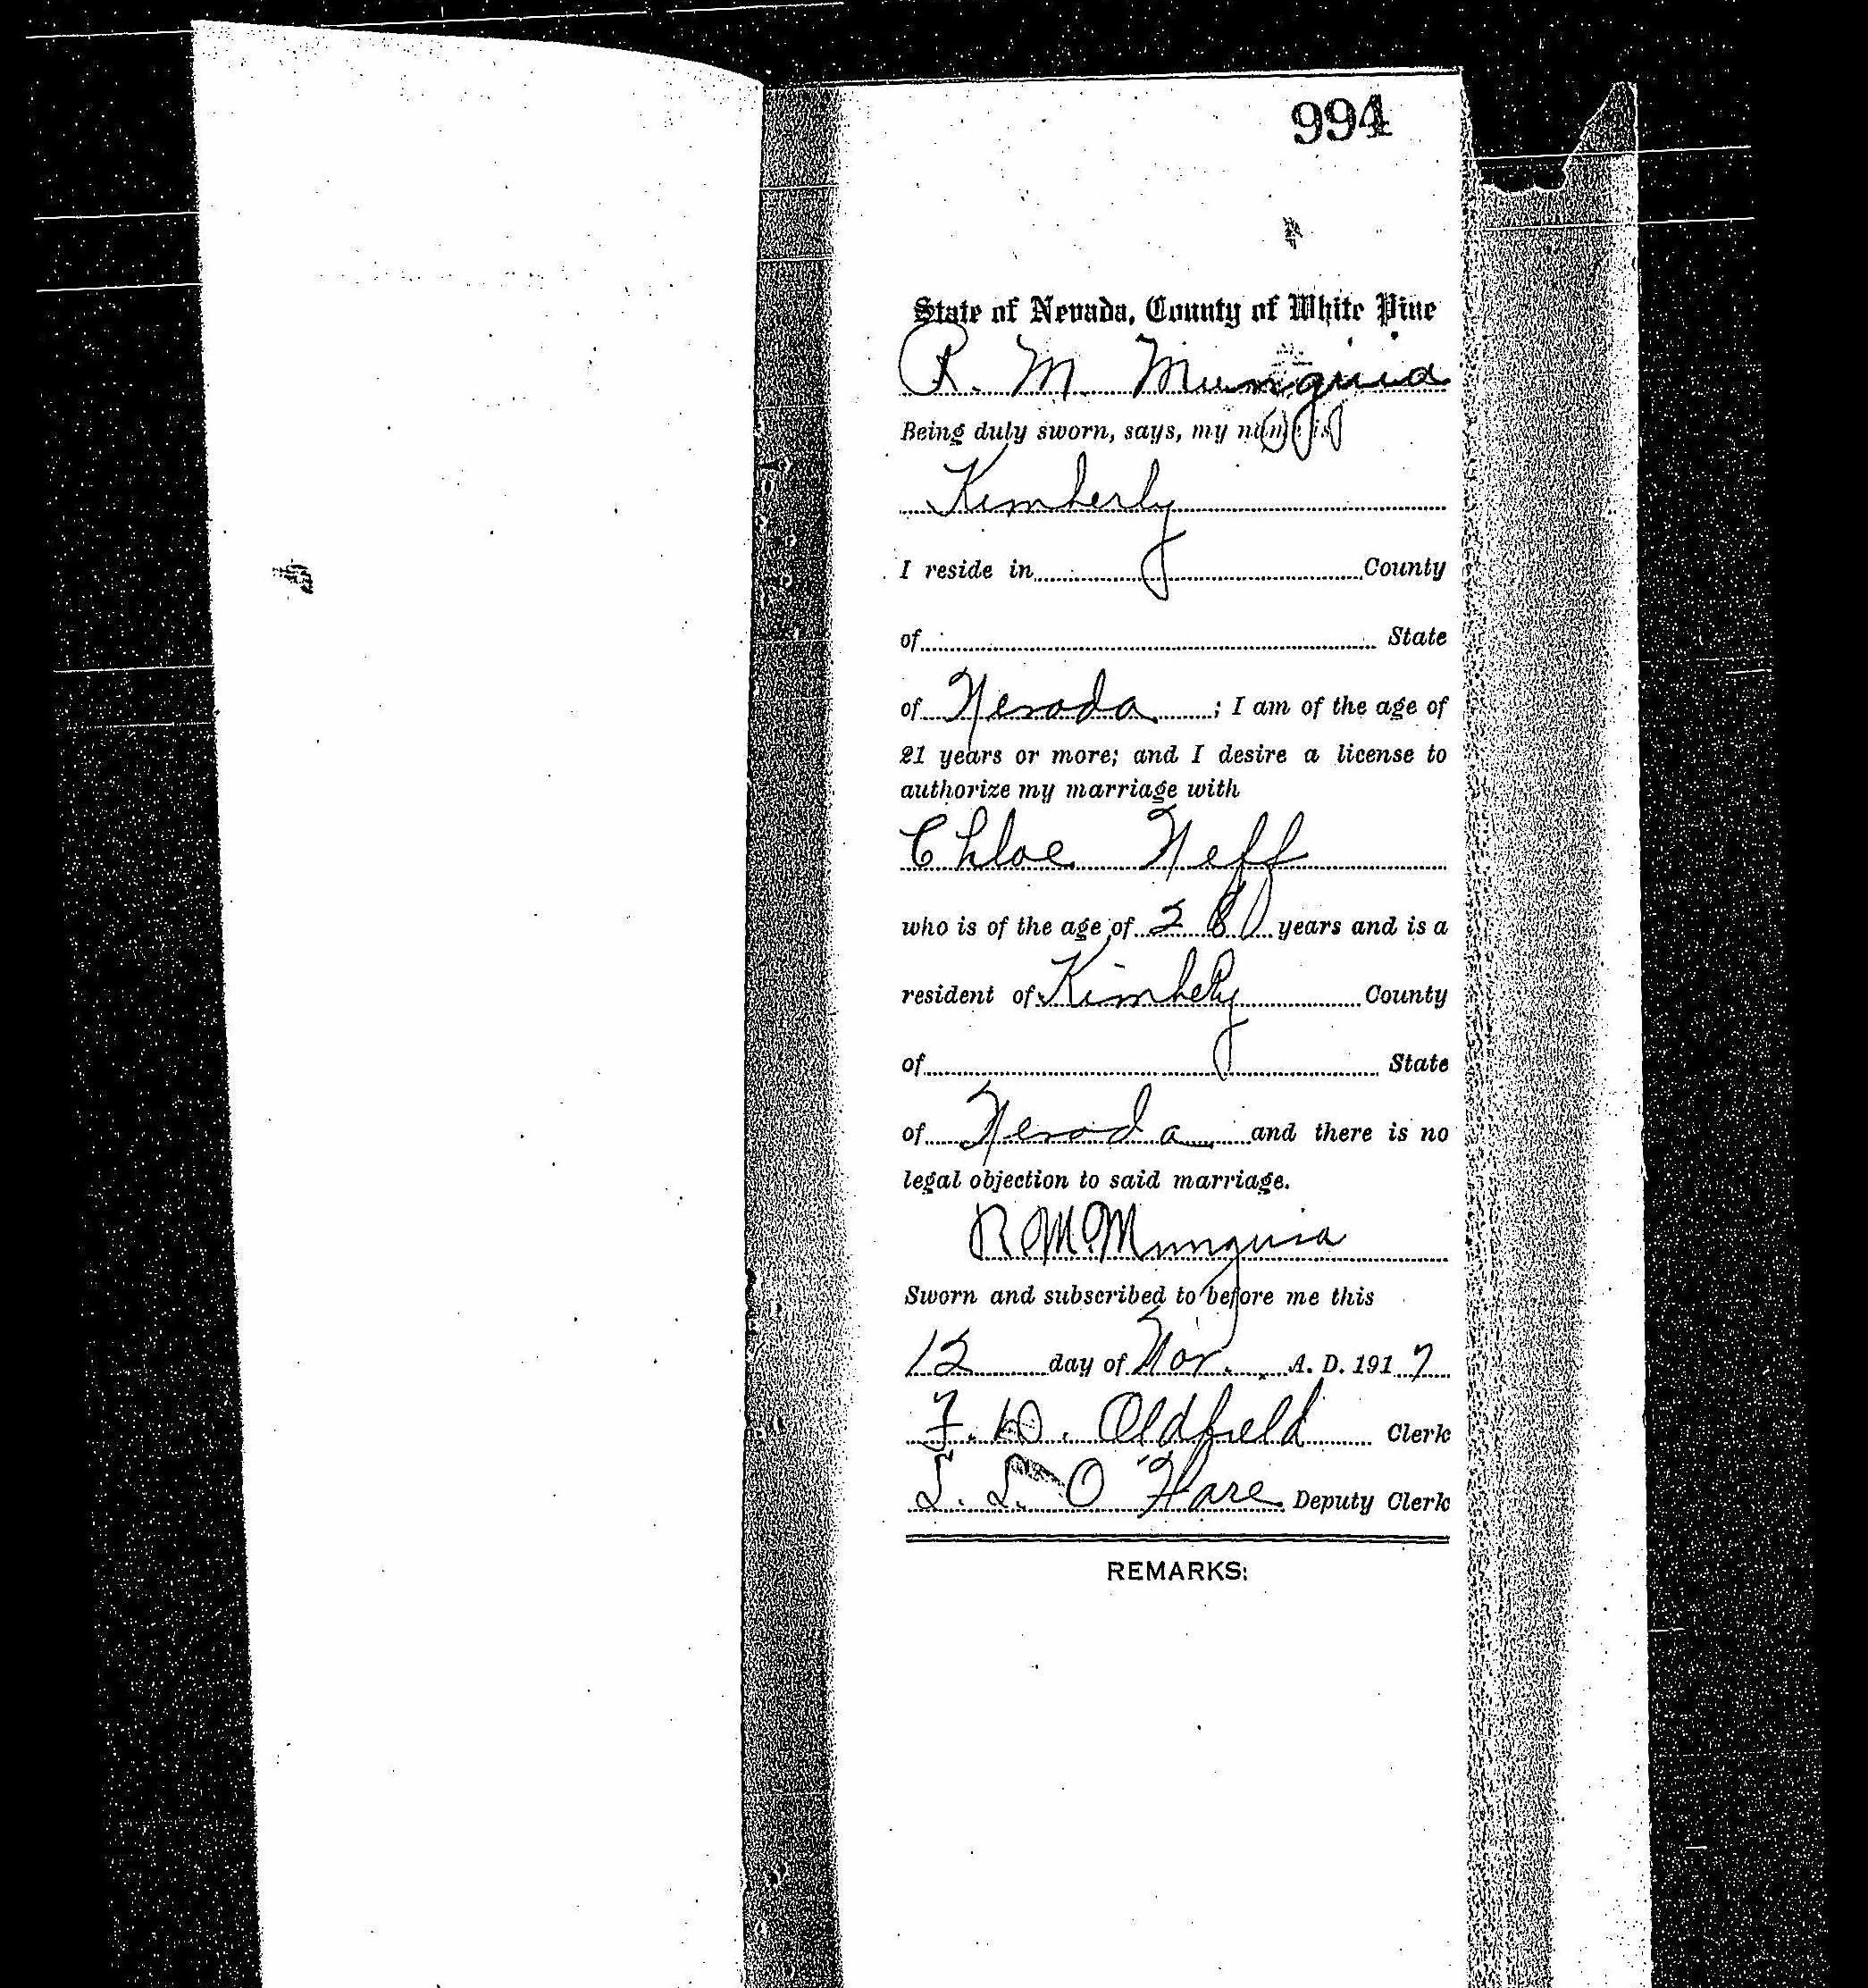 994
State of Nevada, County of White Pine
R. M. Munguia
Being duly sworn, says, my name is
Kimberly
I reside in County
of State
of Nevada ; I am of the age of
21 years or more; and I desire a license to
authorize my marriage with
Chloe Neff
who is of the age of 28 years and is a
resident of Kimberly County
of State
of Nevada and there is no
legal objection to said marriage.
R M Munguia
Sworn and subscribed to before me this
12 day of Nov. A. D. 1917
F. D. Oldfield Clerk
L. L. O'Hare Deputy Clerk
REMARKS: